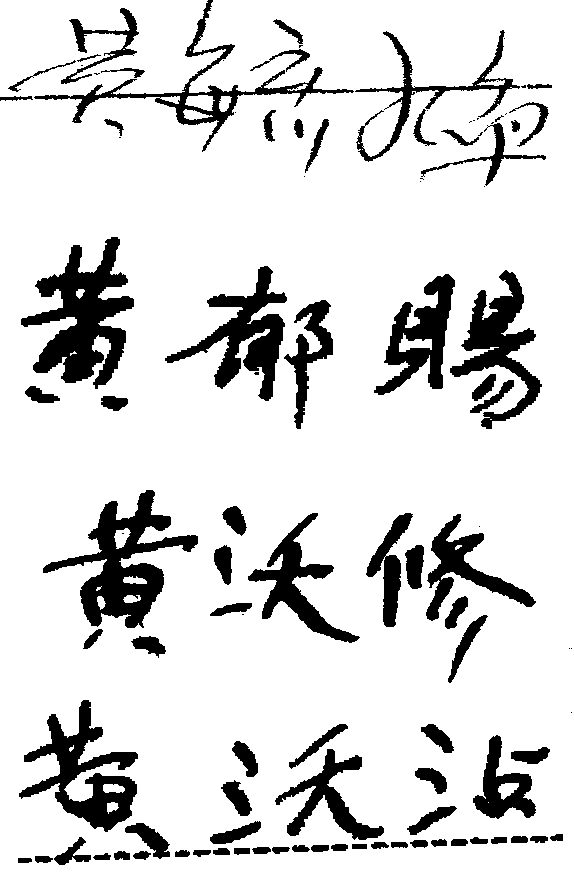 黄毓
黄郁賜
黄沃修
黄沃沾